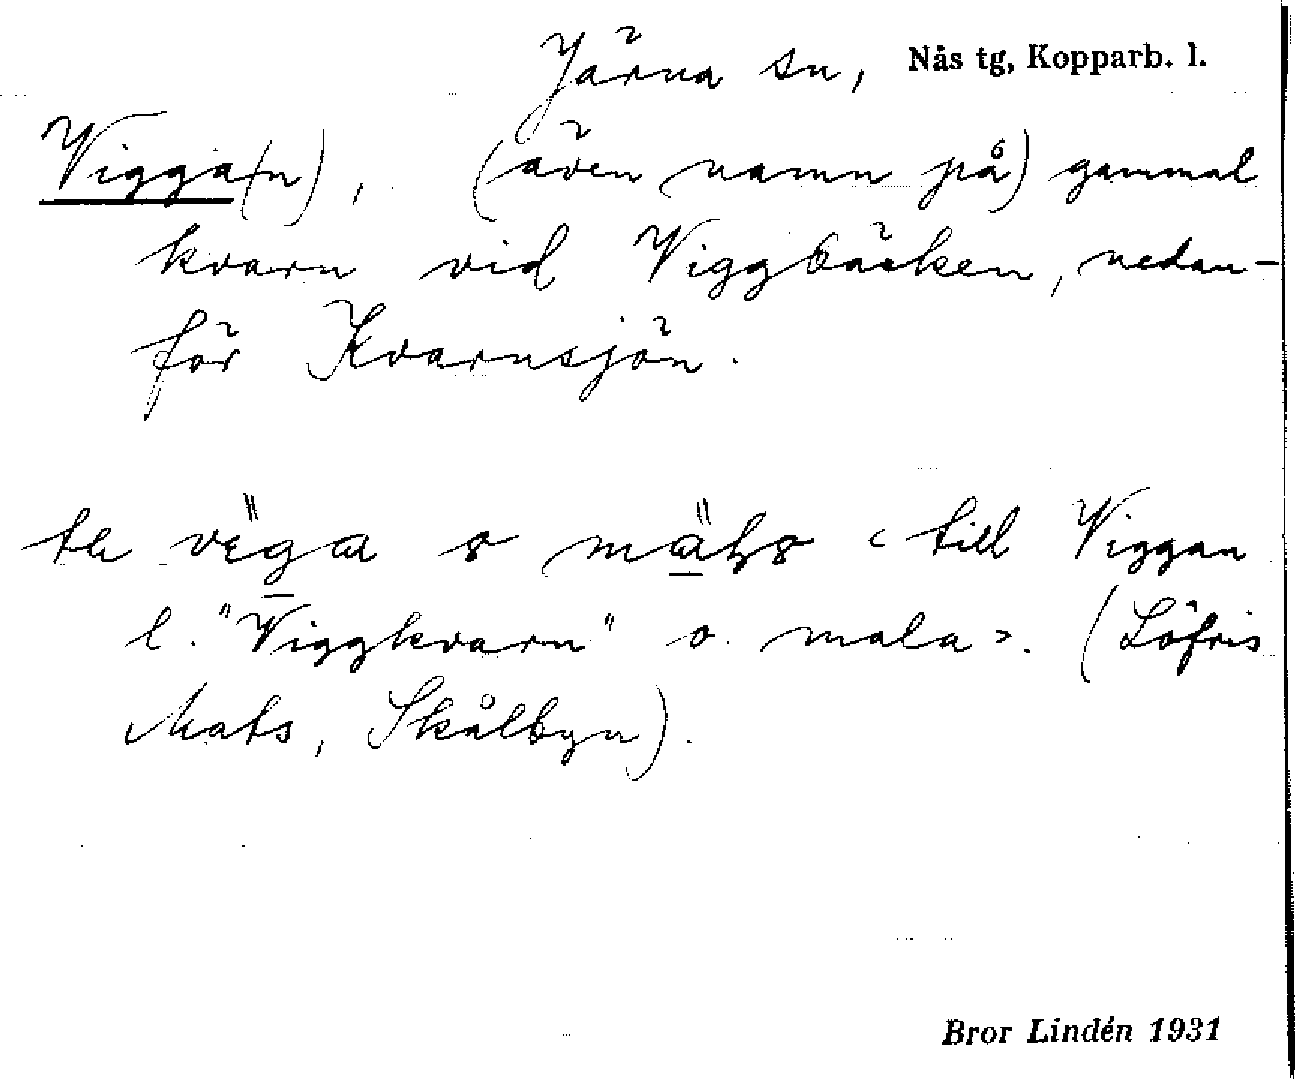 Järna sn, Nås tg, Kopparb. l.
Vigga(n), (även namn på) gammal
kvarn vid Viggbäcken, nedan-
för Kvarnsjön.
te o < till Viggan
l. "Viggkvarn" o. mala >. (Löfris
Mats, Skålbyn).
Bror Lindén 1931